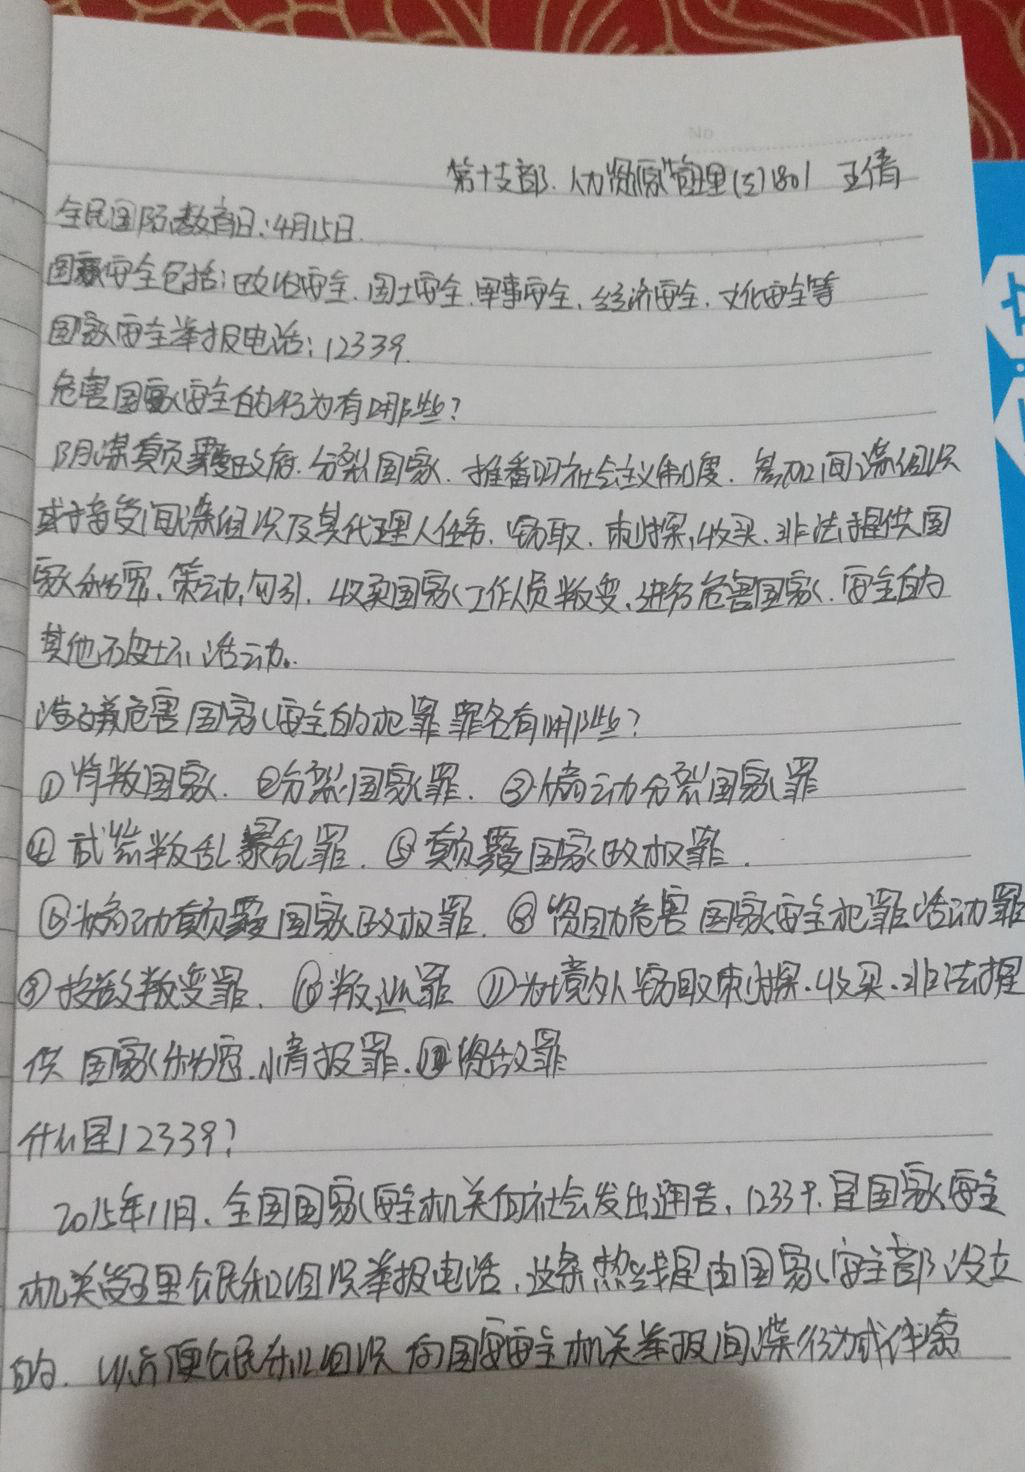 第十支部. 人力资源管理(五)1801 王倩
全民国际教育日:4月15日.
国家安全包括:政治安全.国土安全.军事安全.经济安全.文化安全等
国家安全举报电话:12339.
危害国家安全的行为有哪些?
阴谋颠覆政府.分裂国家.推翻社会主义制度.参加间谍组织
或接受间谍组织及其代理人任务.窃取.刺探,收买.非法提供国
家秘密.策动,勾引.收买国家工作人员叛变.进行危害国家.安全的
其他破坏活动。
涉嫌危害国家安全的犯罪罪名有哪些?
①背叛国家. ②分裂国家罪. ③煽动分裂国家罪
④武装叛乱暴乱罪. ⑤颠覆国家政权罪.
⑥煽动颠覆国家政权罪. ⑧资助危害国家安全犯罪活动罪
⑨投敌叛变罪. ⑩叛逃罪 ⑪为境外窃取刺探.收买.非法提
供国家秘密.情报罪. 资敌罪
什么是12339?
2015年11月.全国国家安全机关向社会发出通告,12339.是国家安全
机关受理公民和组织举报电话.这条热线是由国家安全部设立
的.以方便公民和组织向国家安全机关举报间谍行为或线索